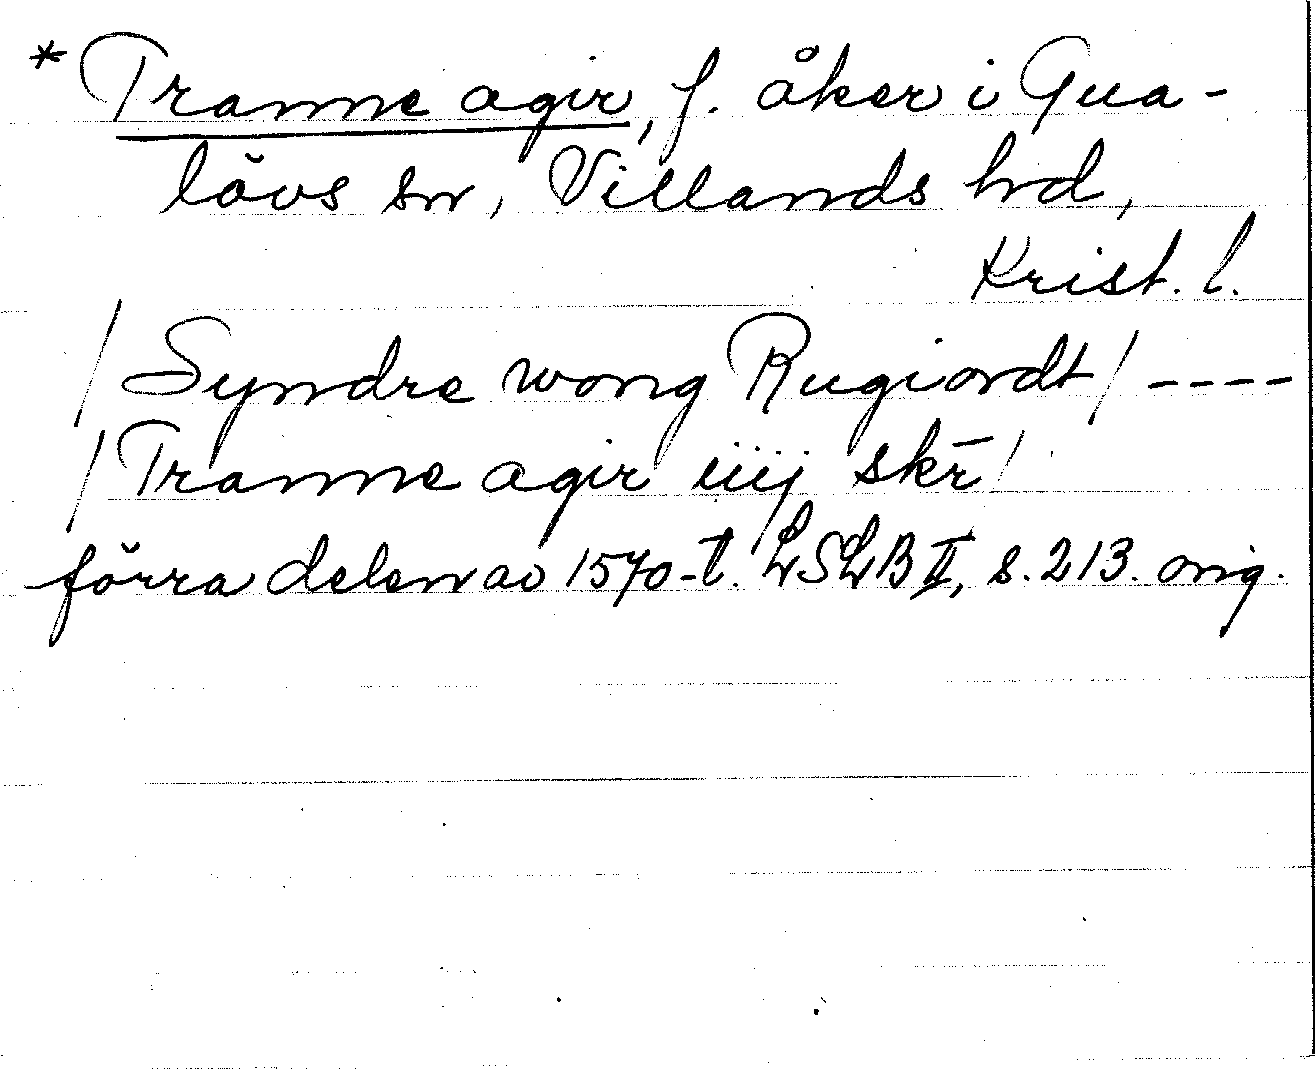 * Tranne agir, f. åker i Gua-
lövs sn, Villands hd,
Krist. l.
/Syndre wong Rugiordt/ ----
/Tranne agir iiij skr̄/
förra delen av 1570-t. LSLB II, s. 213. orig.